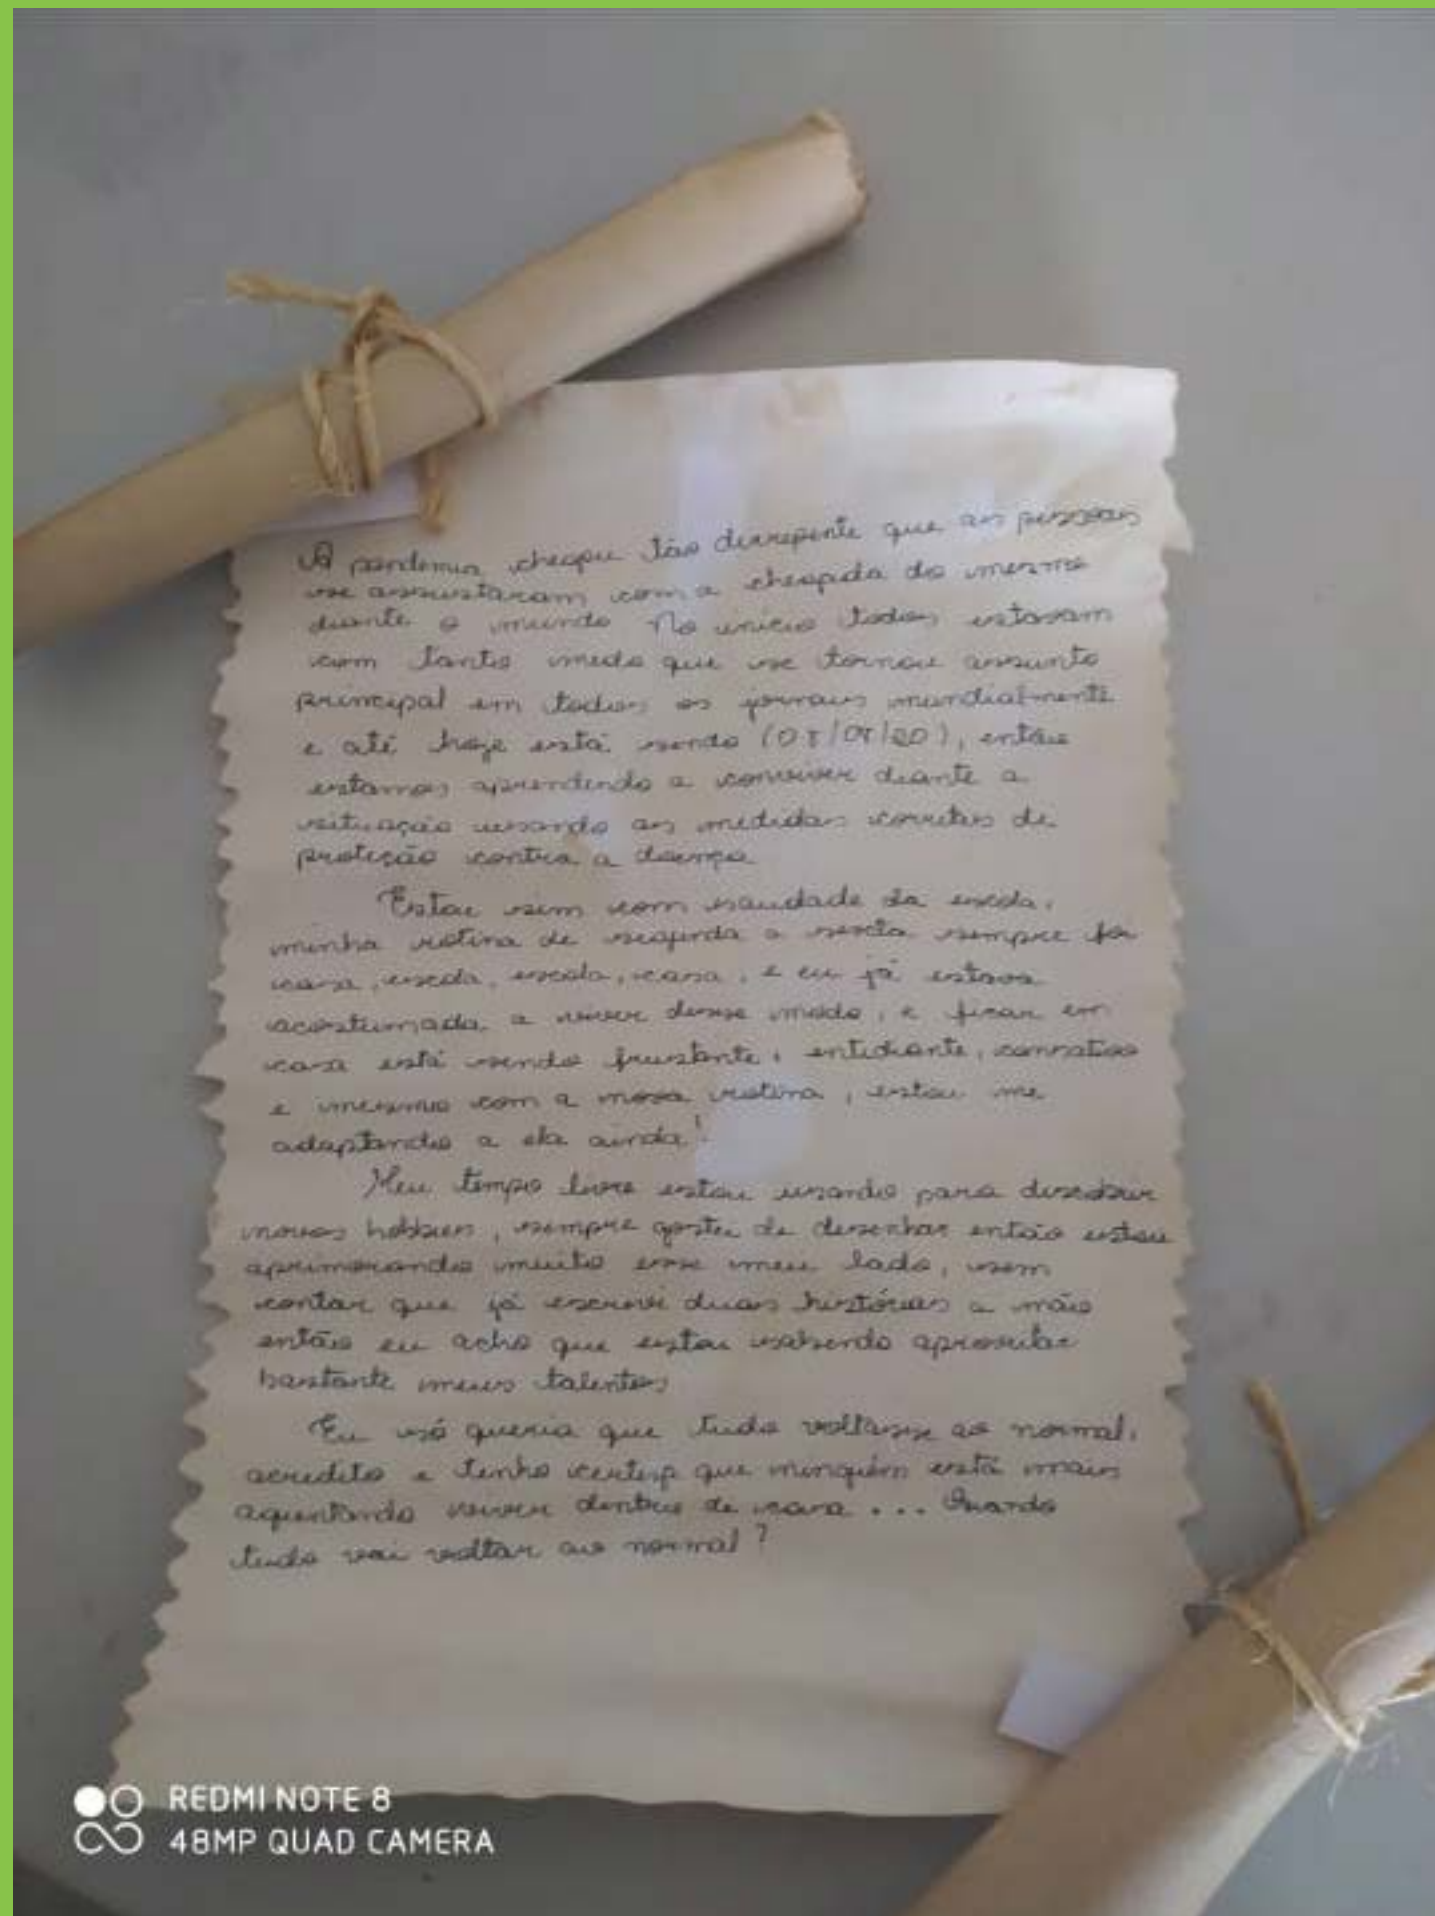 A pandemia chegou tão derrepente que as pessoas
se assustaram com a chegada do mesmo
diante o mundo No início todos estavam
com tanto medo que se tornou assunto
principal em todos os jornais mundialmente
e até hoje está sendo (08/08/20), então
estamos aprendendo a conviver diante a
situação usando as medidas corretas de
proteção contra a doença
Estou sim com saudade da escola,
minha rotina de segunda a sexta sempre foi
casa, escola, escola, casa, e eu já estava
acostumada a viver desse modo, e ficar em
casa está sendo frustante, entediante, cansativo
e mesmo com a nova rotina, estou me
adaptando a ela ainda!
Meu tempo livre estou usando para descobrir
novos hobbies, sempre gostei de desenhar então estou
aprimorando muito esse meu lado, sem
contar que já escrevi duas histórias a mão
então eu acho que estou sabendo aproveitar
bastante meus talentos
Eu só queria que tudo voltasse ao normal,
acredito e tenho certeza que ninguém está mais
aguentando viver dentro de casa ... Quando
tudo vai voltar ao normal?
REDMI NOTE 8
48MP QUAD CAMERA